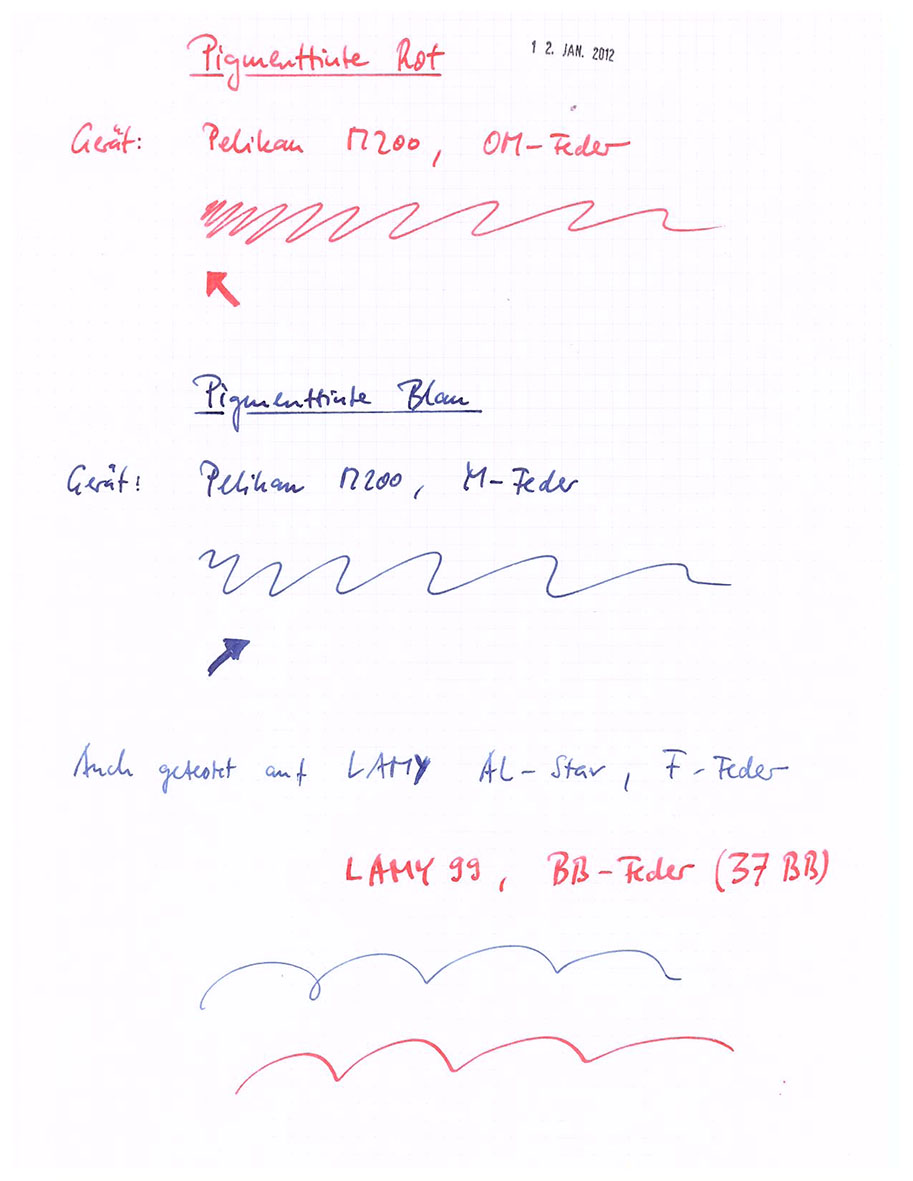 Pigmenttinte Rot
1 2. JAN. 2012
Gerät: Pelikan M200, OM-Feder
Pigmenttinte Blau
Gerät: Pelikan M200, M-Feder
Auch getestet auf LAMY AL-Star, F-Feder
LAMY 99, BB-Feder (37 BB)